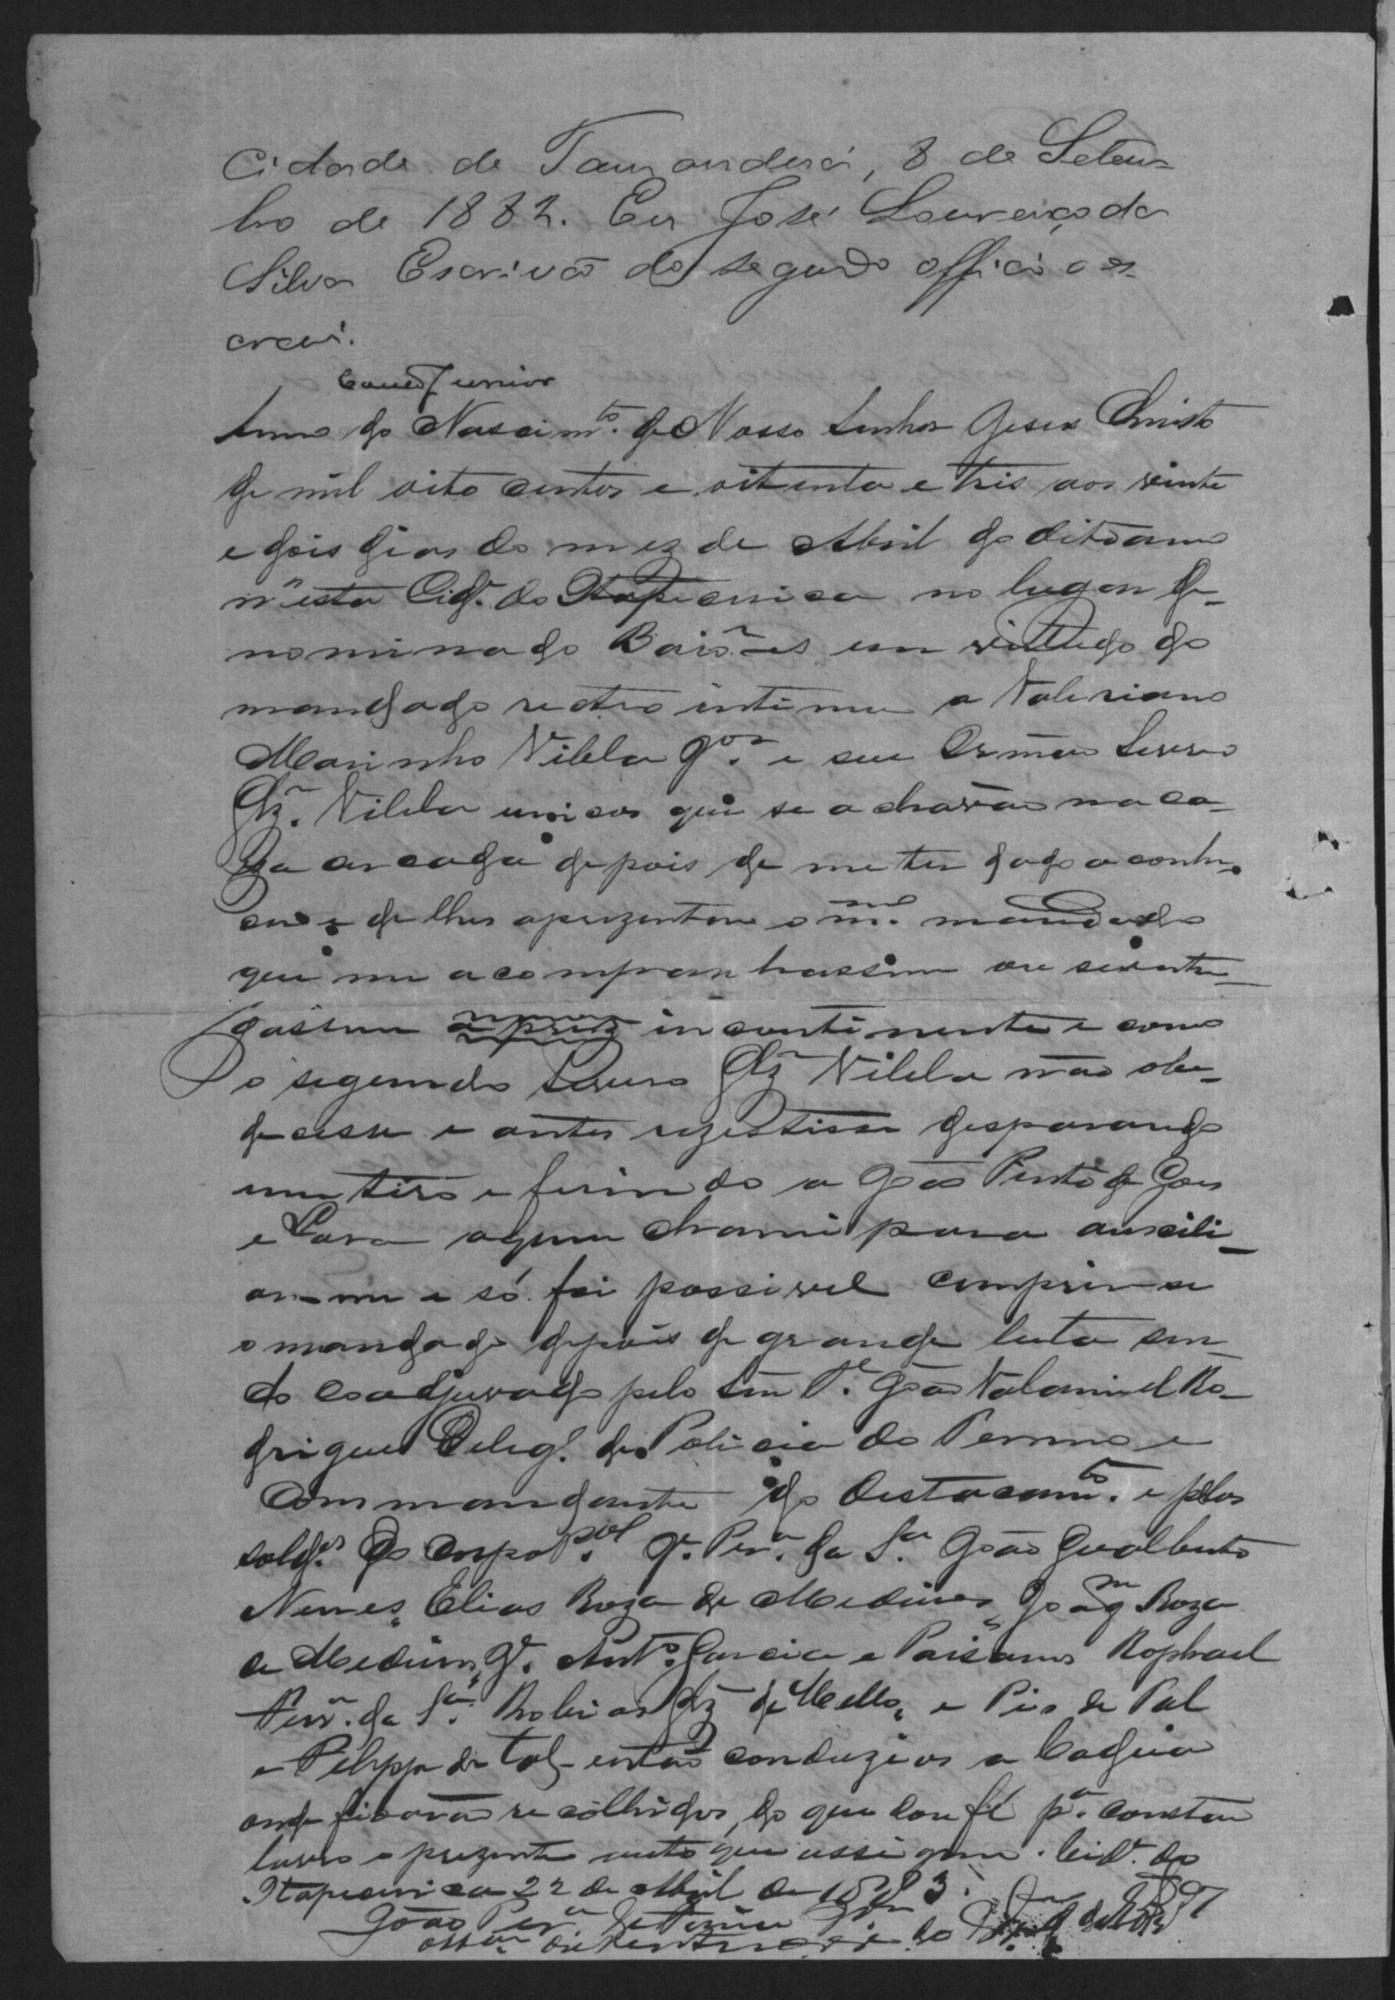 Cidade de Tamanduá, 8 de Setem-
bro de 1882. Eu José Lourenço da
Silva Escrivão do segundo officio o es-
crevi.
Junior
Anno do Nascimto. de Nosso Senhor Jesus Christo
de mil oito centos e oitenta e tres aos vinte
e dois dias do mez de Abril do dito anno
n'esta Cide. do Itapecerica no lugar de-
nominado Baiões em virtude do
mandado retro intimei a Valeriano
Marinho Vilela Jor. e seu Irmão Severo
Glz. Vilela unicos que se achavão na ca-
za cercada depois de me ter dado a conhe-
cer e de lhes aprezentar o mmo. mandado
que me acompanhassem ou se entre-
gassem incontinente e como
o segundo Severo Glz Vilela não obe-
decesse e antes rezestisse desparando
um tiro e ferindo a João Pinto de Goes
e Lara a quem chamei para auxili-
ar-me e só foi possivel cumprir-se
o mandado depois de grande luta sen-
do coadjuvado pelo João Valamiel Ro-
drigues Delego. de Policia do Termo e
Commandante do Destacamto. e pelos
solds. do Corpo Pol. Je. Pera. da Sa. João Gualberto
Nunes, Elias Roza de Medeiros, Joaqm Roza
de Medeiros, Je. Anto. Garcia e Paisanos Raphael
Ferra. da Sa. Glz de Mello, e Pio de Tal
e Felippe de Tal então conduzi os a Cadeia
onde ficarão recolhidos, do que dou fé pa. constar
lavro o prezente auto que assigno. Cide. do
Itapecerica 22 de Abril de 1883.
João Pera.